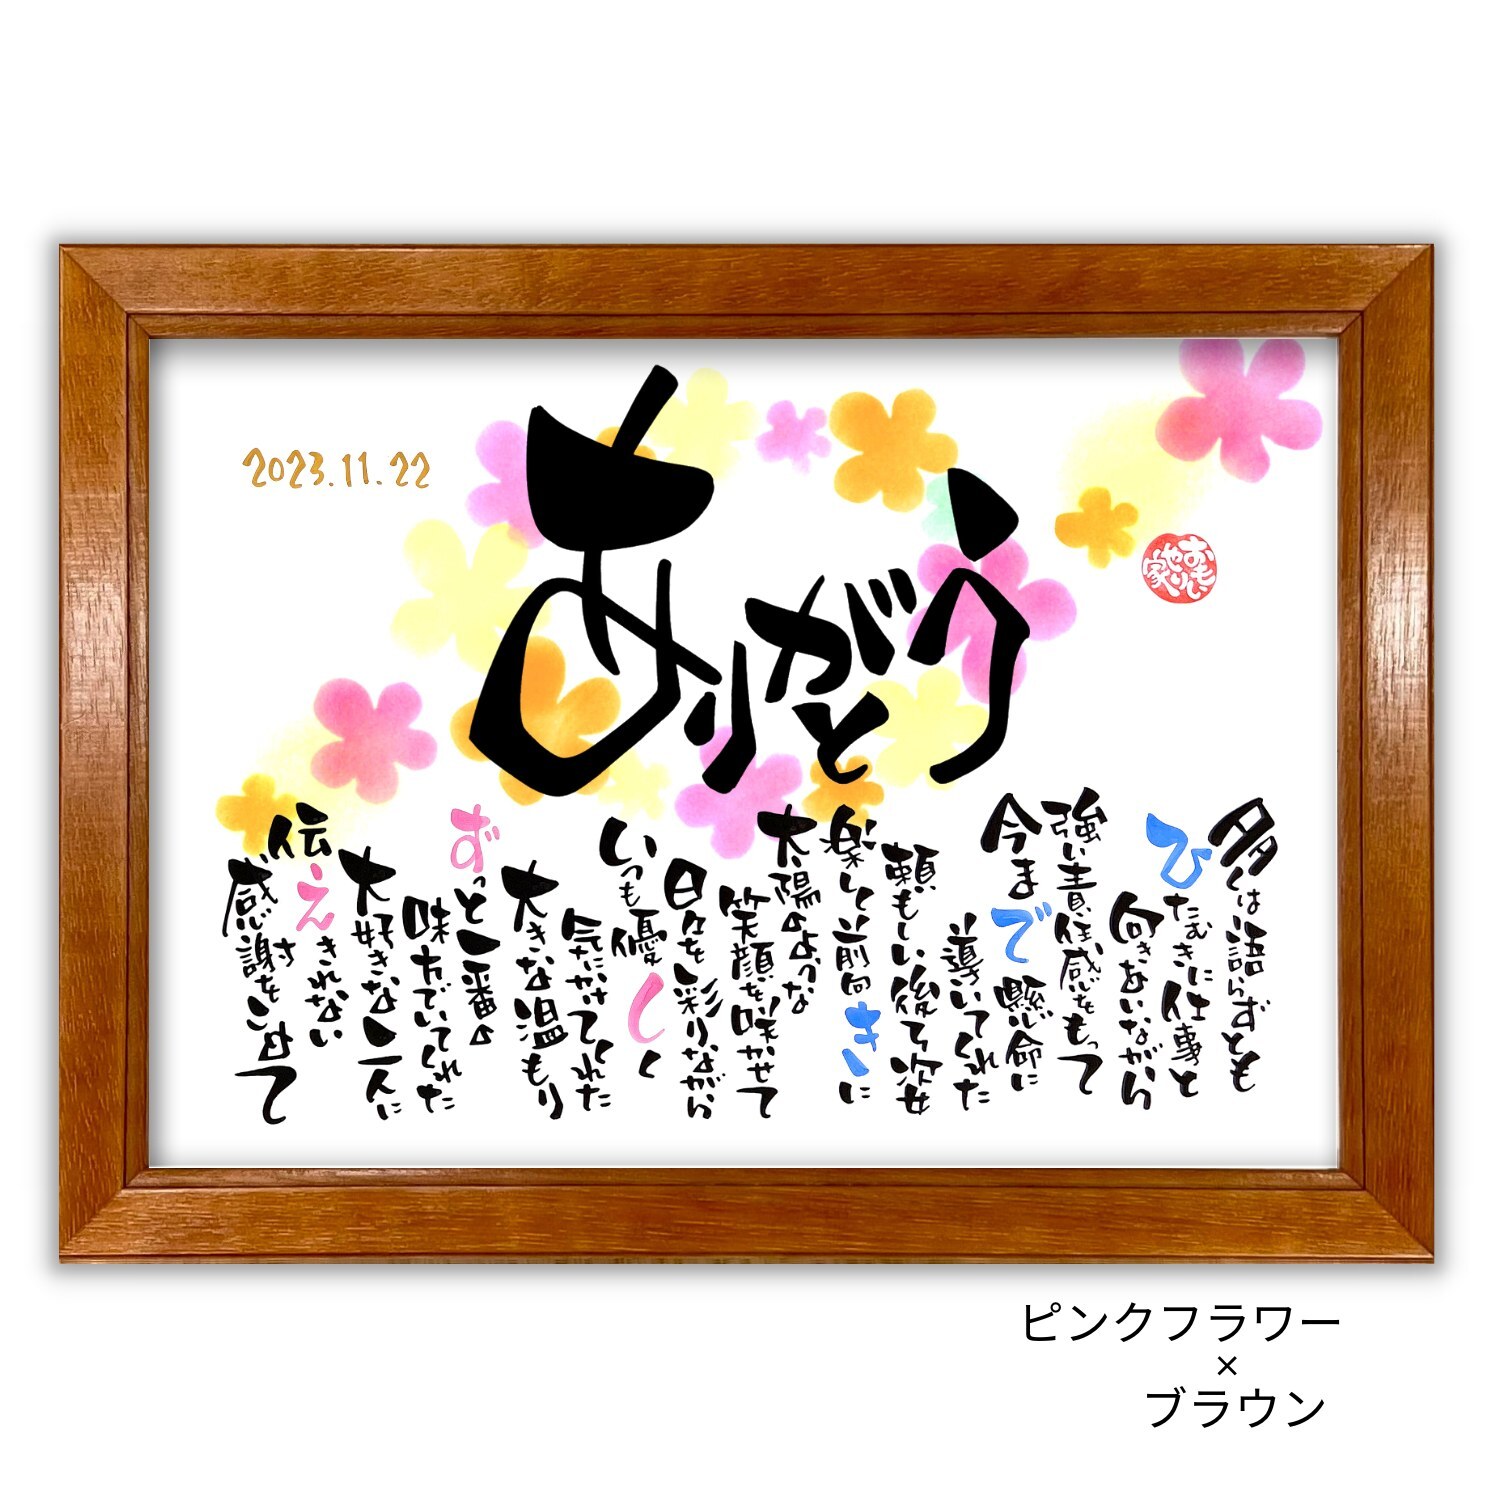 2023.11.22
ありがとう
おもいやり家
多くは語らずとも
ひたむきに仕事と
向きあいながら
強い責任感をもって
今まで懸命に
導いてくれた
頼もしい後ろ姿
楽しく前向きに
太陽のような
笑顔を咲かせて
日々を彩りながら
いつも優しく
気にかけてくれた
大きな温もり
ずっと一番の
味方でいてくれた
大好きな二人に
伝えきれない
感謝をこめて
ピンクフラワー
×
ブラウン